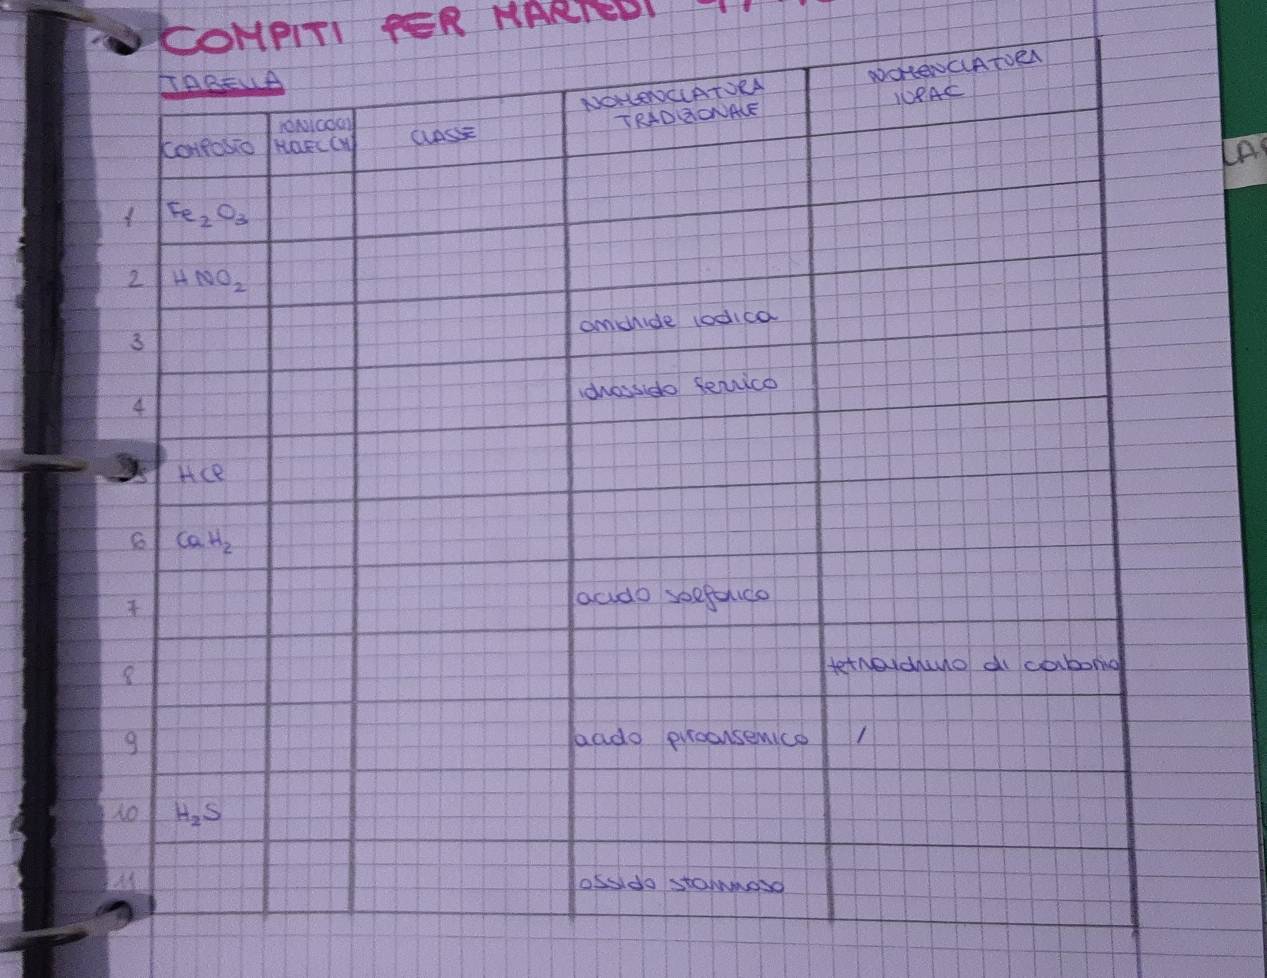 COMPITI PER MARTEDÌ
TABELLA
COMPOSTO IONICO (I) MOLEC (M) CLASSE NOMENCLATURA TRADIZIONALE NOMENCLATURA IUPAC
1 Fe₂O₃
2 HNO₂
3 anidride iodica
4 idrossido ferrico
5 HCl
6 CaH₂
7 acido solforico
8 tetraidruro di carbonio
9 acido piroarsenico /
10 H₂S
11 ossido stannoso